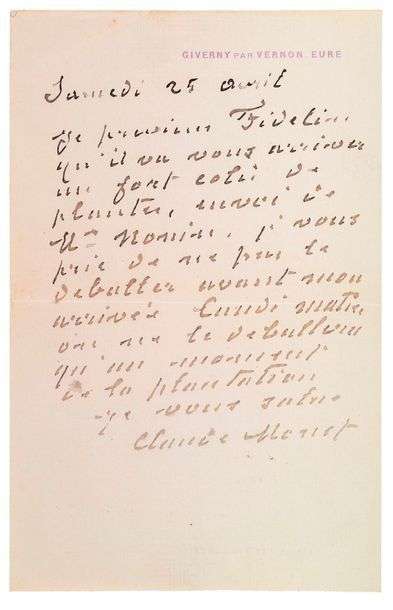 GIVERNY PAR VERNON. EURE
Samedi 25 avril
Je previens Fidelin
qu'il va vous arriver
un fort colis de
plantes, envoi de
Mr Nonin, je vous
prie de ne pas le
deballer avant mon
arrivée Lundi matin
on ne le deballera
qu'au moment
de la plantation
je vous salue
Claude Monet